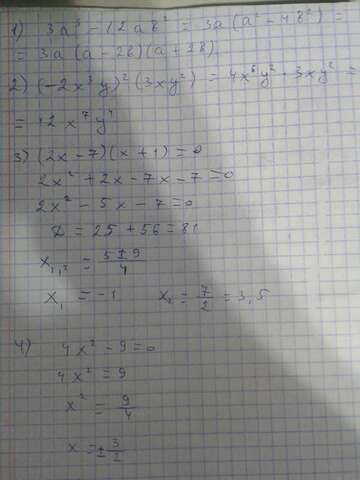 1) 3a³ - 12ab² = 3a(a² - 4b²) =
= 3a(a - 2b)(a + 2b).
2) (-2x³y)² (3xy²) = 4x⁶y² · 3xy² =
= 12x⁷y⁴
3) (2x - 7)(x + 1) = 0
2x² + 2x - 7x - 7 = 0
2x² - 5x - 7 = 0
D = 25 + 56 = 81
x₁,₂ = (5 ± 9)/4
x₁ = -1 x₂ = 7/2 = 3,5
4) 4x² - 9 = 0
4x² = 9
x² = 9/4
x = ± 3/2